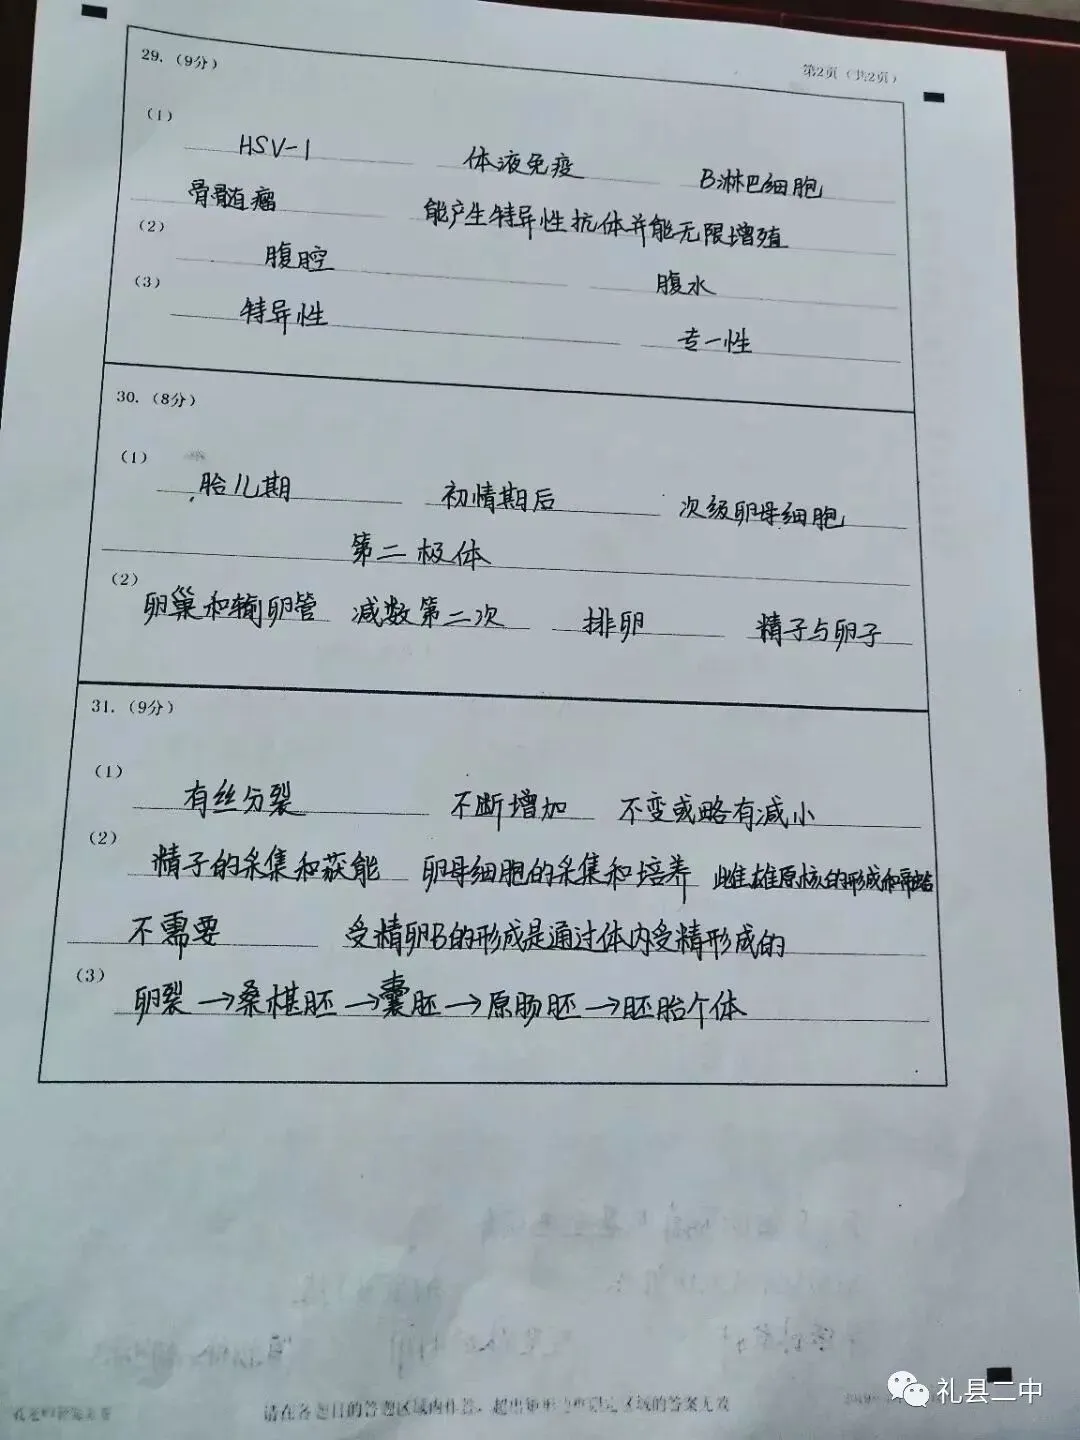 第2页（共2页）
29.（9分）
(1)
HSV-1 体液免疫 B淋巴细胞
骨髓瘤 能产生特异性抗体并能无限增殖
(2)
腹腔 腹水
(3)
特异性 专一性
30.（8分）
(1)
胎儿期 初情期后 次级卵母细胞
第二极体
(2)
卵巢和输卵管 减数第二次 排卵 精子与卵子
31.（9分）
(1)
有丝分裂 不断增加 不变或略有减小
(2)
精子的采集和获能 卵母细胞的采集和培养 雌雄原核的形成和融合
不需要 受精卵B的形成是通过体内受精形成的
(3)
卵裂→桑椹胚→囊胚→原肠胚→胚胎个体
请在各题目的答题区域内作答，超出矩形边框限定区域的答案无效
礼县二中